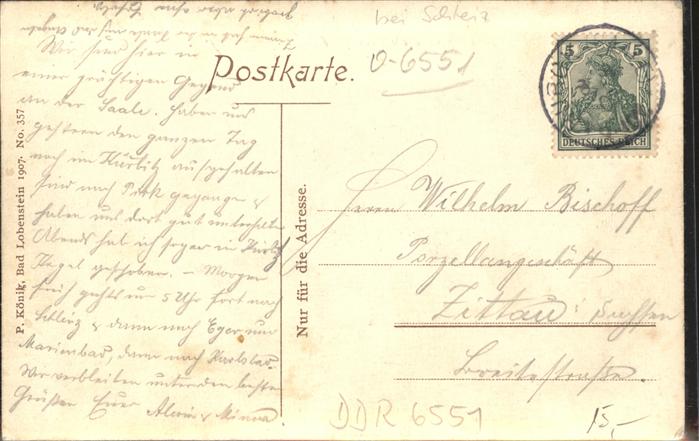 bei Schleiz
0-6551
Postkarte.
5 5
DEUTSCHES REICH
Wir sind hier in
einer prächtigen Gegend
an der Saale. Haben uns
gestern den ganzen Tag
noch im Kürbitz aufgehalten
sind nach Pirk gegangen &
haben uns dort gut unterhalten
Abends hat ich sogar in
Kegel geschoben. – Morgen
früh gehts um 5 Uhr fort nach
Schleiz & dann nach Eger, und
Marienbad, dann nach Karlsbad.
Wir verbleiben unter den besten
Grüßen Euer Alwin & Minna.
P. König, Bad Lobenstein 1907. No. 357
Nur für die Adresse.
Herrn Wilhelm Bischoff
Porzellangeschäft
Zittau i. Sachsen
Breitestraße.
DDR 6551
15,-